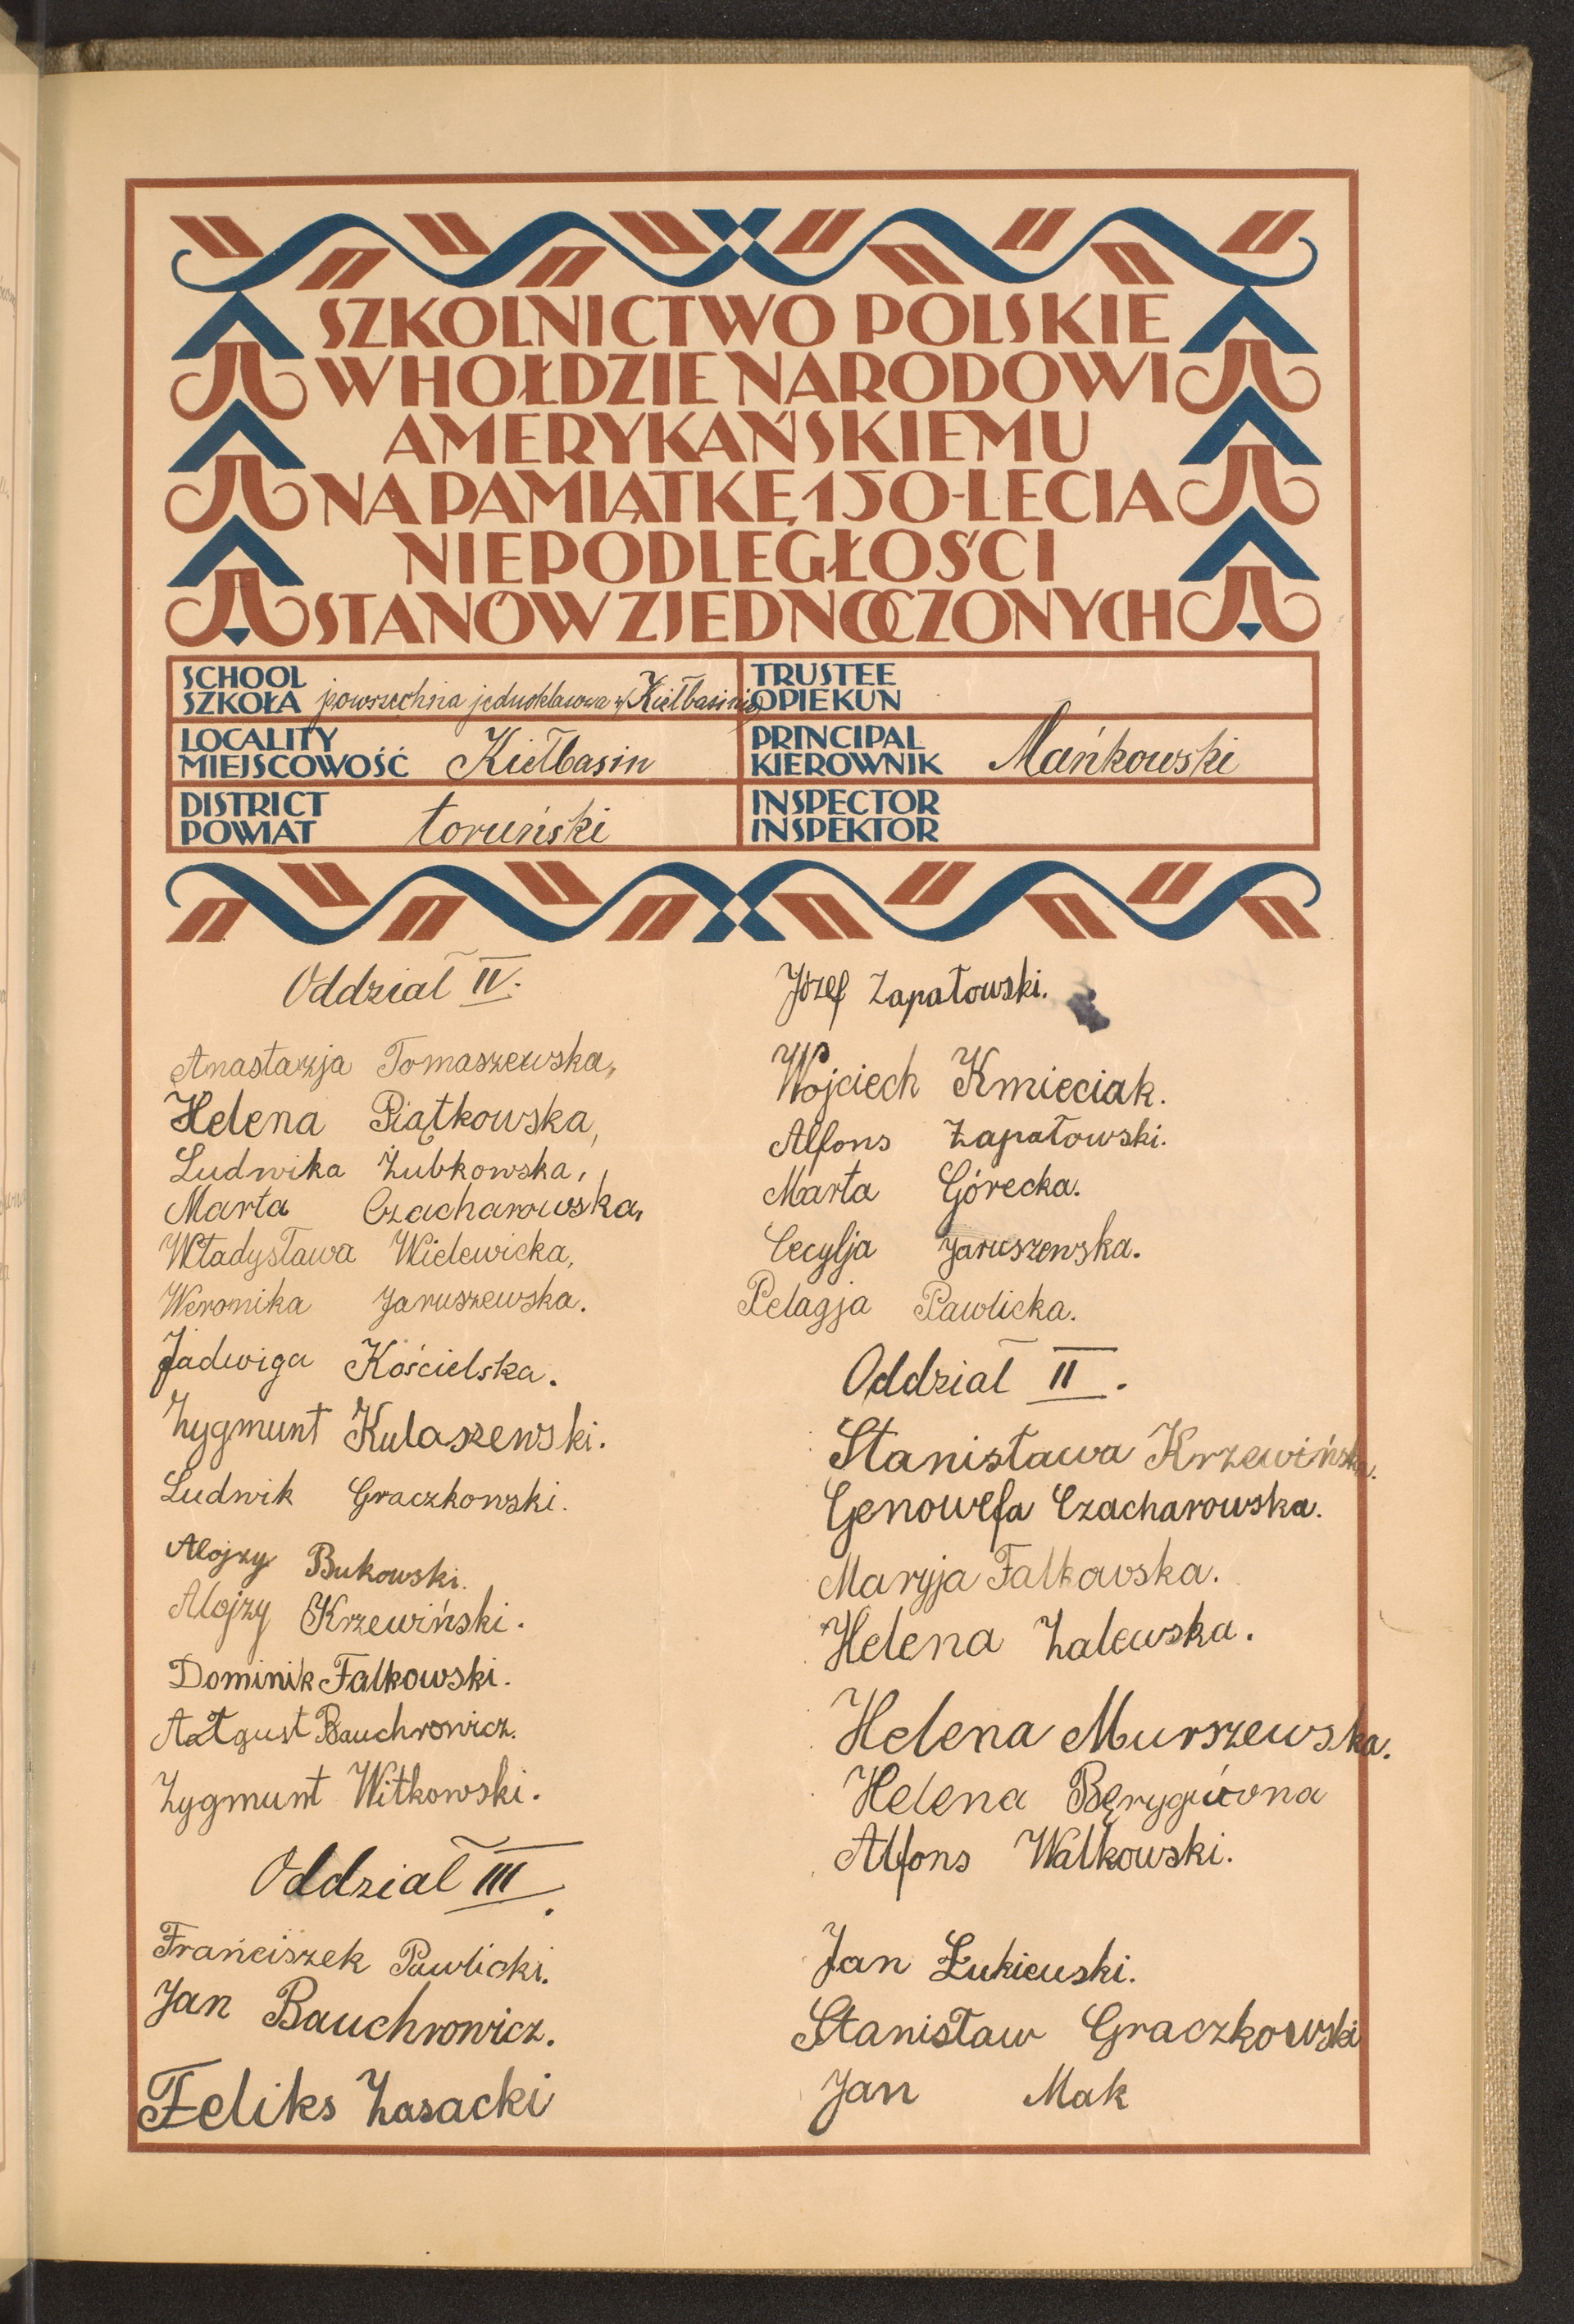 SZKOLNICTWO POLSKIE
W HOŁDZIE NARODOWI
AMERYKAŃSKIEMU
NA PAMIĄTKĘ 150-LECIA
NIEPODLEGŁOŚCI
STANÓW ZJEDNOCZONYCH
SCHOOL
SZKOŁA powszechna jednoklasowa w Kiełbasinie
TRUSTEE
OPIEKUN
LOCALITY
MIEJSCOWOŚĆ Kiełbasin
PRINCIPAL
KIEROWNIK Mańkowski
DISTRICT
POWIAT toruński
INSPECTOR
INSPEKTOR
Oddział IV.
Anastazja Tomaszewska,
Helena Piątkowska,
Ludwika Żubkowska,
Marta Czacharowska,
Władysława Wielewicka,
Weronika Jaruszewska.
Jadwiga Kościelska.
Zygmunt Kulaszewski.
Ludwik Graczkowski.
Alojzy Bukowski.
Alojzy Krzewiński.
Dominik Falkowski.
Bauchrowicz.
Zygmunt Witkowski.
Oddział III.
Franciszek Pawlicki.
Jan Bauchrowicz.
Feliks Zasacki
Józef Zapałowski.
Wojciech Kmieciak.
Alfons Zapałowski.
Marta Górecka.
Cecylja Jaruszewska.
Pelagja Pawlicka.
Oddział II.
Stanisława Krzewińska.
Genowefa Czacharowska.
Maryja Falkowska.
Helena Zalewska.
Helena Murszewska.
Helena
Alfons Walkowski.
Jan Łukiewski.
Stanisław Graczkowski
Jan Mak